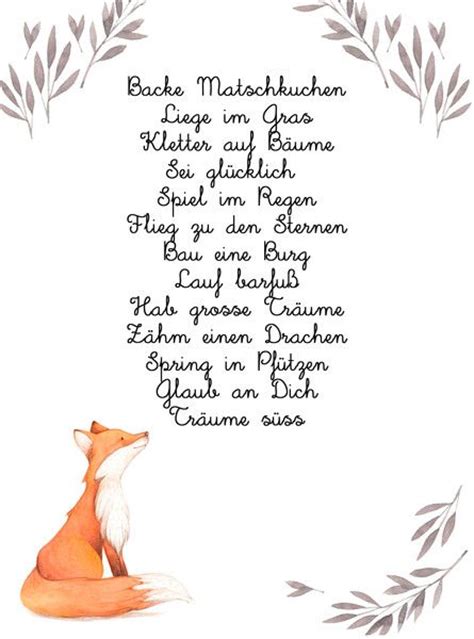 Backe Matschkuchen
Liege im Gras
Kletter auf Bäume
Sei glücklich
Spiel im Regen
Flieg zu den Sternen
Bau eine Burg
Lauf barfuß
Hab grosse Träume
Zähm einen Drachen
Spring in Pfützen
Glaub an Dich
Träume süss